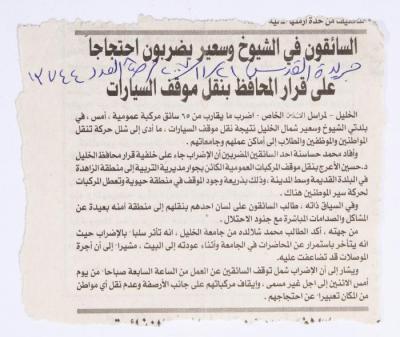 السائقون في الشيوخ وسعير يضربون احتجاجاً
جريدة القدس ٢١/١١/ العدد ١٣٧٤٤
على قرار المحافظ بنقل موقف السيارات
الخليل - لمراسل القدس الخاص - اضرب ما يقارب من ٦٥ سائق مركبة عمومية ، أمس ، في
بلدتي الشيوخ وسعير شمال الخليل نتيجة نقل موقف السيارات ، ما أدى إلى شلل حركة تنقل
المواطنين والموظفين والطلاب إلى أماكن عملهم وجامعاتهم .
وأفاد محمد حساسنة احد السائقين المضربين أن الإضراب جاء على خلفية قرار محافظ الخليل
د.حسين الأعرج بنقل موقف المركبات العمومية الكائن بجوار مديرية التربية إلى منطقة الزاهدة
في البلدة القديمة وسط المدينة ،وذلك بذريعة وجود الموقف في منطقة حيوية وتعطل المركبات
لحركة سير الموطنين هناك .
وفي السياق ذاته ، طالب السائقون على لسان احدهم بنقلهم إلى منطقة أمنه بعيدة عن
المشاكل والصدامات المباشرة مع جنود الاحتلال .
من جهته ، أكد الطالب محمد شلالده من جامعة الخليل ، انه تأثر سلبا بالإضراب حيث
انه يتأخر باستمرار عن المحاضرات في الجامعة وأثناء عودته إلى البيت ، مشيرا إلى أن أجرة
الموصلات قد تضاعفت عليه.
ويشار إلى أن الإضراب شمل توقف السائقين عن العمل من الساعة السابعة صباحا من يوم
أمس الاثنين إلى اجل غير مسمى ، وإيقاف مركباتهم على جانب الأرصفة وعدم نقل أي مواطن
من المكان تعبيرا عن احتجاجهم .